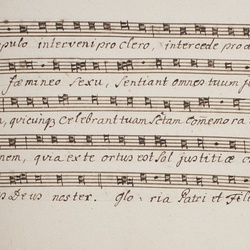 pulo interveni pro clero, intercede pro d
fœmineo sexu, sentiant omnes tuum
quicunq3 celebrant tuam sctam comemora
nem, quia ex te ortus est sol justitiæ c
s Deus noster. Glo ria Patri et Fili